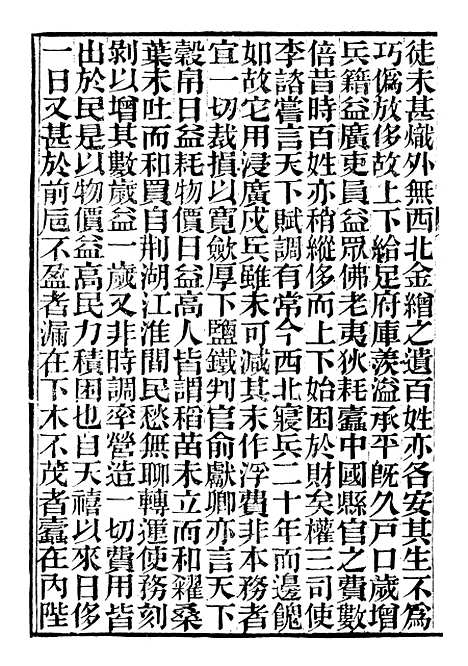 徒未甚熾外無西北金繒之遺百姓亦各安其生不爲
巧僞放侈故上下給足府庫羨溢承平旣久戸口歲增
兵籍益廣吏員益眾佛老夷狄耗蠹中國縣官之費數
倍昔時百姓亦稍縱侈而上下始困於財矣權三司使
李諮嘗言天下賦調有常今西北寢兵二十年而邊餽
如故它用浸廣戍兵雖未可減其末作浮費非本務者
宜一切裁損以寬斂厚下鹽鐵判官俞獻卿亦言天下
穀帛日益耗物價日益高人皆謂稻苗未立而和糴桑
葉未吐而和買自荆湖江淮間民愁無聊轉運使務刻
剝以增其數歲益一歲又非時調率營造一切費用皆
出於民是以物價益高民力積困也自天禧以來日侈
一日又甚於前卮不盈者漏在下木不茂者蠹在内陛